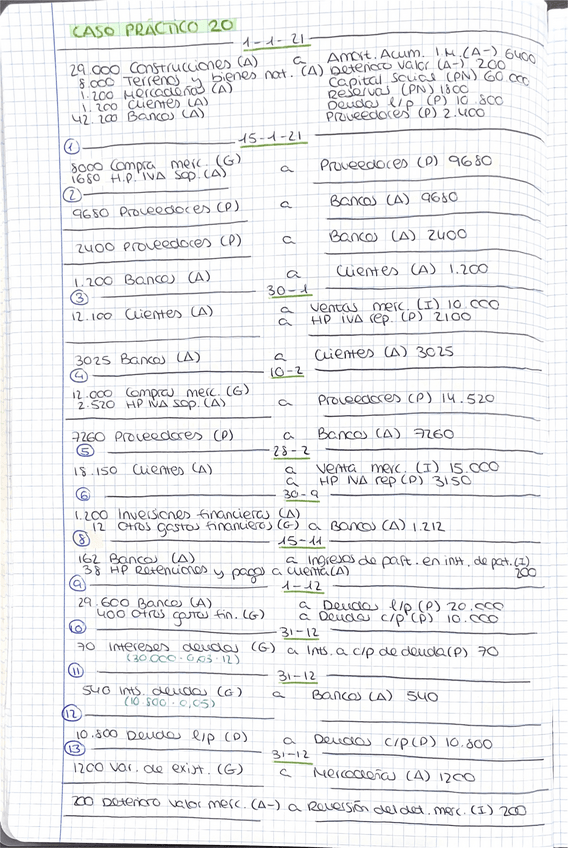 CASO PRÁCTICO 20
1-1-21
29.000 Construcciones (A) a Amort. Acum. I M. (A-) 6400
8.000 Terrenos y bienes nat. (A) Deterioro valor (A-) 200
1.200 Mercaderías (A) Capital Social (PN) 60.000
1.200 Clientes (A) Reservas (PN) 1800
42.200 Bancos (A) Deudas l/p (P) 10.800
Proveedores (P) 2.400
① 15-1-21
8000 Compra merc. (G) a Proveedores (P) 9680
1680 H.P. IVA Sop. (A)
②
9680 Proveedores (P) a Bancos (A) 9680
2400 Proveedores (P) a Bancos (A) 2400
1.200 Bancos (A) a Clientes (A) 1.200
③ 30-1
12.100 Clientes (A) a Ventas merc. (I) 10.000
a HP IVA rep. (P) 2100
3025 Bancos (A) a Clientes (A) 3025
④ 10-2
12.000 Compras merc. (G) a Proveedores (P) 14.520
2.520 HP IVA sop. (A)
7260 Proveedores (P) a Bancos (A) 7260
⑤ 28-2
18.150 Clientes (A) a Venta merc. (I) 15.000
a HP IVA rep (P) 3150
⑥ 30-9
1.200 Inversiones financieras (A)
12 Otros gastos financieros (G) a Bancos (A) 1.212
⑧ 15-11
162 Bancos (A) a Ingresos de part. en inst. de pat. (I)
38 HP Retenciones y pagos a cuenta (A) 200
⑨ 1-12
29.600 Bancos (A) a Deudas l/p (P) 20.000
400 Otros gastos fin. (G) a Deudas c/p (P) 10.000
⑩ 31-12
70 Intereses deudas (G) a Ints. a c/p de deuda (P) 70
(30.000 · 0,03 · 12)
⑪ 31-12
540 Ints. deudas (G) a Bancos (A) 540
(10.800 · 0,05)
⑫
10.800 Deudas l/p (P) a Deudas c/p (P) 10.800
⑬ 31-12
1200 Var. de exist. (G) a Mercaderías (A) 1200
200 Deterioro valor merc. (A-) a Reversión del det. merc. (I) 200